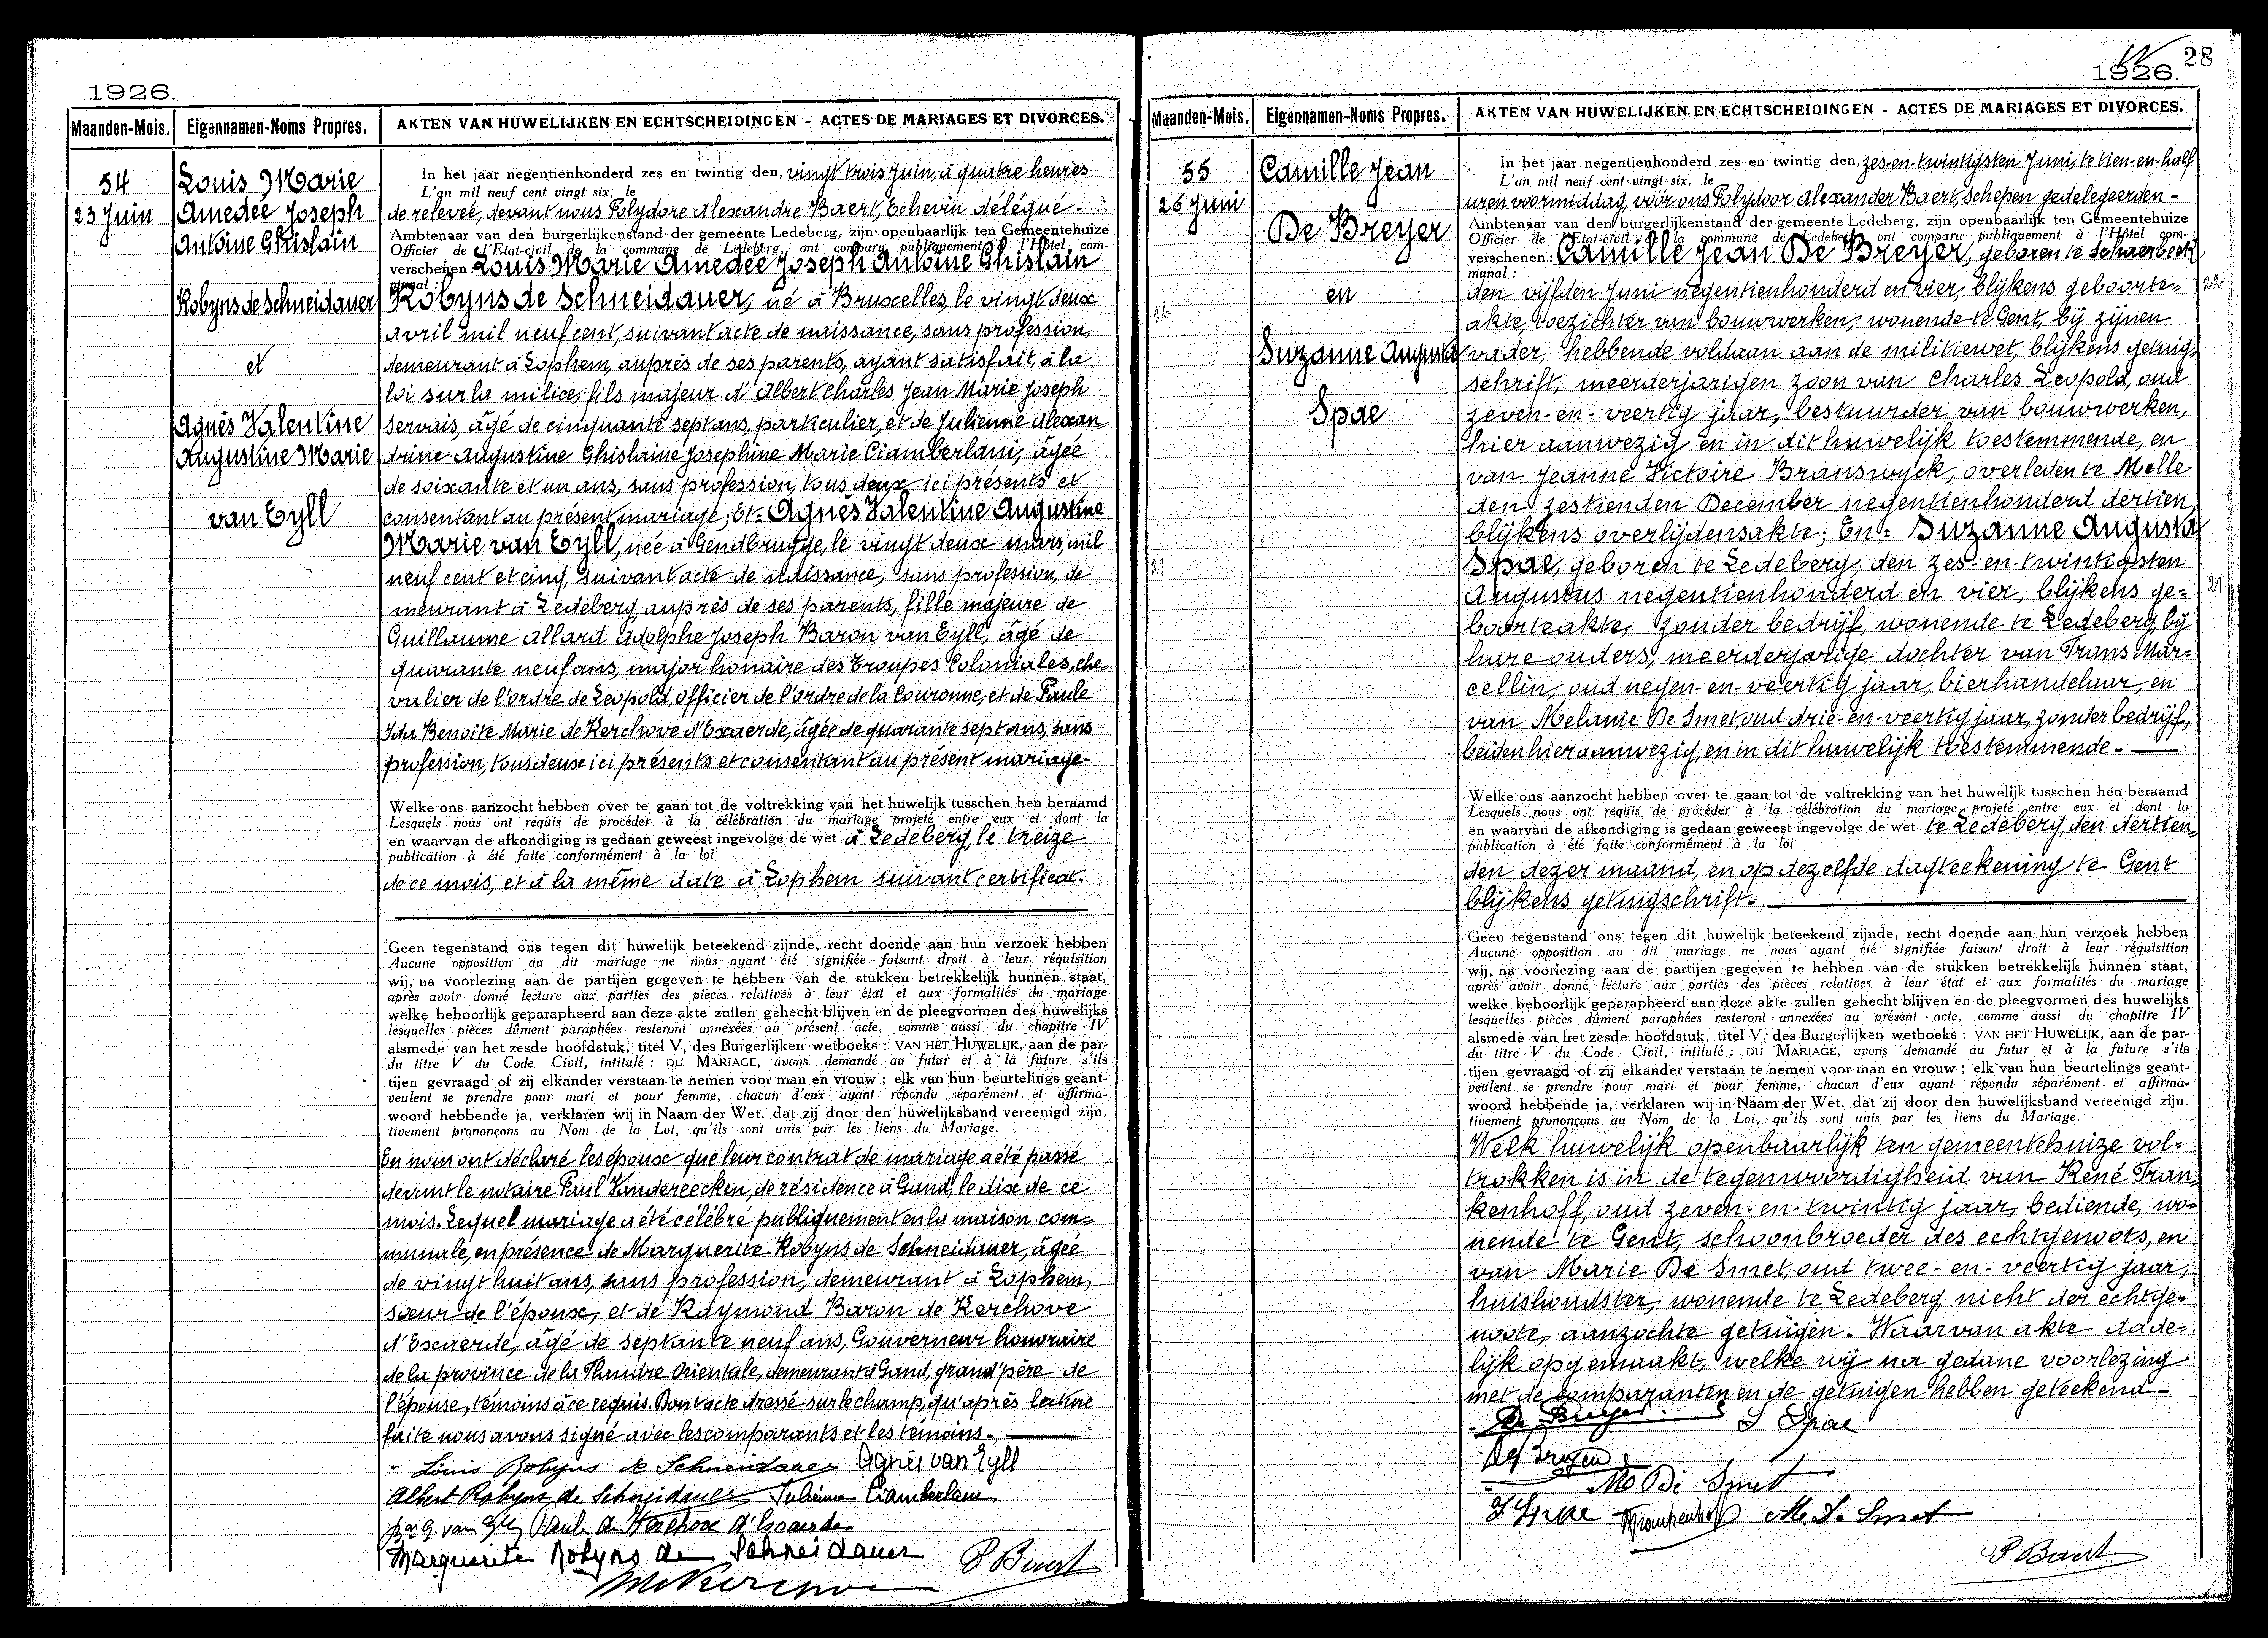 1926.
Maanden-Mois. Eigennamen-Noms Propres. AKTEN VAN HUWELIJKEN EN ECHTSCHEIDINGEN - ACTES DE MARIAGES ET DIVORCES.
54
23 Juin
Louis Marie
Amedée Joseph
Antoine Ghislain
Robyns de Schneidauer
et
Agnès Valentine
Augustine Marie
van Eyll
In het jaar negentienhonderd zes en twintig den, vingt trois Juin, à quatre heures
L'an mil neuf cent vingt six, le
de relevée, devant nous Polydore Alexandre Baert, Echevin délégué -
Ambtenaar van den burgerlijkenstand der gemeente Ledeberg, zijn openbaarlijk ten Gemeentehuize
Officier de l'Etat-civil de la commune de Ledeberg, ont comparu publiquement à l'Hôtel com-
verschenen: Louis Marie Amedée Joseph Antoine Ghislain
munal:
Robyns de Schneidauer, né à Bruxelles, le vingt deux
avril mil neuf cent, suivant acte de naissance, sans profession,
demeurant à Lophem, auprès de ses parents, ayant satisfait, à la
loi sur la milice, fils majeur d'Albert Charles Jean Marie Joseph
Servais, âgé de cinquante sept ans, particulier, et de Julienne Alexan
drine Augustine Ghislaine Josephine Marie Ciamberlani, âgée
de soixante et un ans, sans profession, tous deux ici présents et
consentant au présent mariage; Et= Agnès Valentine Augustine
Marie van Eyll, née à Gendbrugge, le vingt deux mars, mil
neuf cent et cinq, suivant acte de naissance, sans profession, de
meurant à Ledeberg auprès de ses parents, fille majeure de
Guillaume Allard Adolphe Joseph Baron van Eyll, âgé de
quarante neuf ans, major honaire des Troupes Coloniales, che
valier de l'ordre de Leopold, officier de l'ordre de la Couronne, et de Paule
Ida Benoite Marie de Kerchove d'Exaerde, âgée de quarante sept ans, sans
profession, tous deux ici présents et consentant au présent mariage-
Welke ons aanzocht hebben over te gaan tot de voltrekking van het huwelijk tusschen hen beraamd
Lesquels nous ont requis de procéder à la célébration du mariage projeté entre eux et dont la
en waarvan de afkondiging is gedaan geweest ingevolge de wet à Ledeberg, le treize
publication à été faite conformément à la loi
de ce mois, et à la même date à Lophem suivant certificat.
Geen tegenstand ons tegen dit huwelijk beteekend zijnde, recht doende aan hun verzoek hebben
Aucune opposition au dit mariage ne nous ayant éié signifiée faisant droit à leur réquisition
wij, na voorlezing aan de partijen gegeven te hebben van de stukken betrekkelijk hunnen staat,
après avoir donné lecture aux parties des pièces relatives à leur état et aux formalités du mariage
welke behoorlijk geparapheerd aan deze akte zullen gehecht blijven en de pleegvormen des huwelijks
lesquelles pièces dûment paraphées resteront annexées au présent acte, comme aussi du chapitre IV
alsmede van het zesde hoofdstuk, titel V, des Burgerlijken wetboeks : VAN HET HUWELIJK, aan de par-
du titre V du Code Civil, intitulé : DU MARIAGE, avons demandé au futur et à la future s'ils
tijen gevraagd of zij elkander verstaan te nemen voor man en vrouw ; elk van hun beurtelings geant-
veulent se prendre pour mari et pour femme, chacun d'eux ayant répondu séparément et affirma-
woord hebbende ja, verklaren wij in Naam der Wet. dat zij door den huwelijksband vereenigd zijn.
tivement prononçons au Nom de la Loi, qu'ils sont unis par les liens du Mariage.
En nous ont déclaré les époux que leur contrat de mariage a été passé
devant le notaire Paul Vandereecken, de résidence à Gand, le dix de ce
mois. Lequel mariage a été célébré publiquement en la maison com=
munale, en présence de Marguerite Robyns de Schneidauer, âgée
de vingt huit ans, sans profession, demeurant à Lophem,
sœur de l'époux, et de Raymond Baron de Kerchove
d'Exaerde, âgé de septante neuf ans, Gouverneur honoraire
de la province de la Flandre Orientale, demeurant à Gand, grand'père de
l'épouse, témoins à ce requis. Dont acte dressé sur le champ, qu'après lecture
faite nous avons signé avec les comparants et les témoins.
Louis Robyns de Schneidauer Agnès van Eyll
Albert Robyns de Schneidauer Julienne Ciamberlani
Bon G. van Eyll Paule de Kerchove d'Exaerde
Marguerite Robyns de Schneidauer P Baert
28
1926.
Maanden-Mois. Eigennamen-Noms Propres. AKTEN VAN HUWELIJKEN EN ECHTSCHEIDINGEN - ACTES DE MARIAGES ET DIVORCES.
55
26 Juni
Camille Jean
De Breyer
en
Suzanne Augusta
Spae
In het jaar negentienhonderd zes en twintig den, zes-en-twintigsten Juni, te tien-en-half
L'an mil neuf cent vingt six, le
uren voormiddag, vóór ons Polydoor Alexander Baert, Schepen gedelegeerden -
Ambtenaar van den burgerlijkenstand der gemeente Ledeberg, zijn openbaarlijk ten Gemeentehuize
Officier de l'Etat-civil de la commune de Ledeberg, ont comparu publiquement à l'Hôtel com-
verschenen: Camille Jean De Breyer, geboren te Schaerbeek
munal :
den vijfden Juni negentienhonderd en vier, blijkens geboorte= 22
akte, toezichter van bouwwerken, wonende te Gent, bij zijnen
vader, hebbende voldaan aan de militiewet, blijkens getuig=
schrift, meerderjarigen zoon van Charles Leopold, oud
zeven-en-veertig jaar, bestuurder van bouwwerken,
hier aanwezig en in dit huwelijk toestemmende, en
van Jeanne Victoire Branswyck, overleden te Melle
den zestienden December negentienhonderd dertien,
blijkens overlijdensakte; En= Suzanne Augusta
21 Spae, geboren te Ledeberg, den zes-en-twintigsten
Augustus negentienhonderd en vier, blijkens ge= 21
boorteakte, zonder bedrijf, wonende te Ledeberg, bij
hare ouders, meerderjarige dochter van Frans Mar=
cellin, oud negen-en-veertig jaar, bierhandelaar, en
van Melanie De Smet, oud drie-en-veertig jaar, zonder bedrijf,
beiden hier aanwezig, en in dit huwelijk toestemmende.
Welke ons aanzocht hebben over te gaan tot de voltrekking van het huwelijk tusschen hen beraamd
Lesquels nous ont requis de procéder à la célébration du mariage projeté entre eux et dont la
en waarvan de afkondiging is gedaan geweest ingevolge de wet te Ledeberg, den dertien=
publication à été faite conformément à la loi
den dezer maand, en op dezelfde dagteekening te Gent
blijkens getuigschrift.
Geen tegenstand ons tegen dit huwelijk beteekend zijnde, recht doende aan hun verzoek hebben
Aucune opposition au dit mariage ne nous ayant éié signifiée faisant droit à leur réquisition
wij, na voorlezing aan de partijen gegeven te hebben van de stukken betrekkelijk hunnen staat,
après avoir donné lecture aux parties des pièces relatives à leur état et aux formalités du mariage
welke behoorlijk geparapheerd aan deze akte zullen gehecht blijven en de pleegvormen des huwelijks
lesquelles pièces dûment paraphées resteront annexées au présent acte, comme aussi du chapitre IV
alsmede van het zesde hoofdstuk, titel V, des Burgerlijken wetboeks : VAN HET HUWELIJK, aan de par-
du titre V du Code Civil, intitulé : DU MARIAGE, avons demandé au futur et à la future s'ils
tijen gevraagd of zij elkander verstaan te nemen voor man en vrouw ; elk van hun beurtelings geant-
veulent se prendre pour mari et pour femme, chacun d'eux ayant répondu séparément et affirma-
woord hebbende ja, verklaren wij in Naam der Wet. dat zij door den huwelijksband vereenigd zijn.
tivement prononçons au Nom de la Loi, qu'ils sont unis par les liens du Mariage.
Welk huwelijk openbaarlijk ten gemeentehuize vol=
trokken is in de tegenwoordigheid van René Fran=
kenhoff, oud zeven-en-twintig jaar, bediende, wo=
nende te Gent, schoonbroeder des echtgenoots, en
van Marie De Smet, oud twee-en-veertig jaar,
huishoudster, wonende te Ledeberg nicht der echtge=
noote, aanzochte getuigen. Waarvan akte dade=
lijk opgemaakt, welke wij na gedane voorlezing
met de comparanten en de getuigen hebben geteekend-
De Breyer S Spae
M De Smet
F Spae RFrankenhoff M. De Smet
P Baert